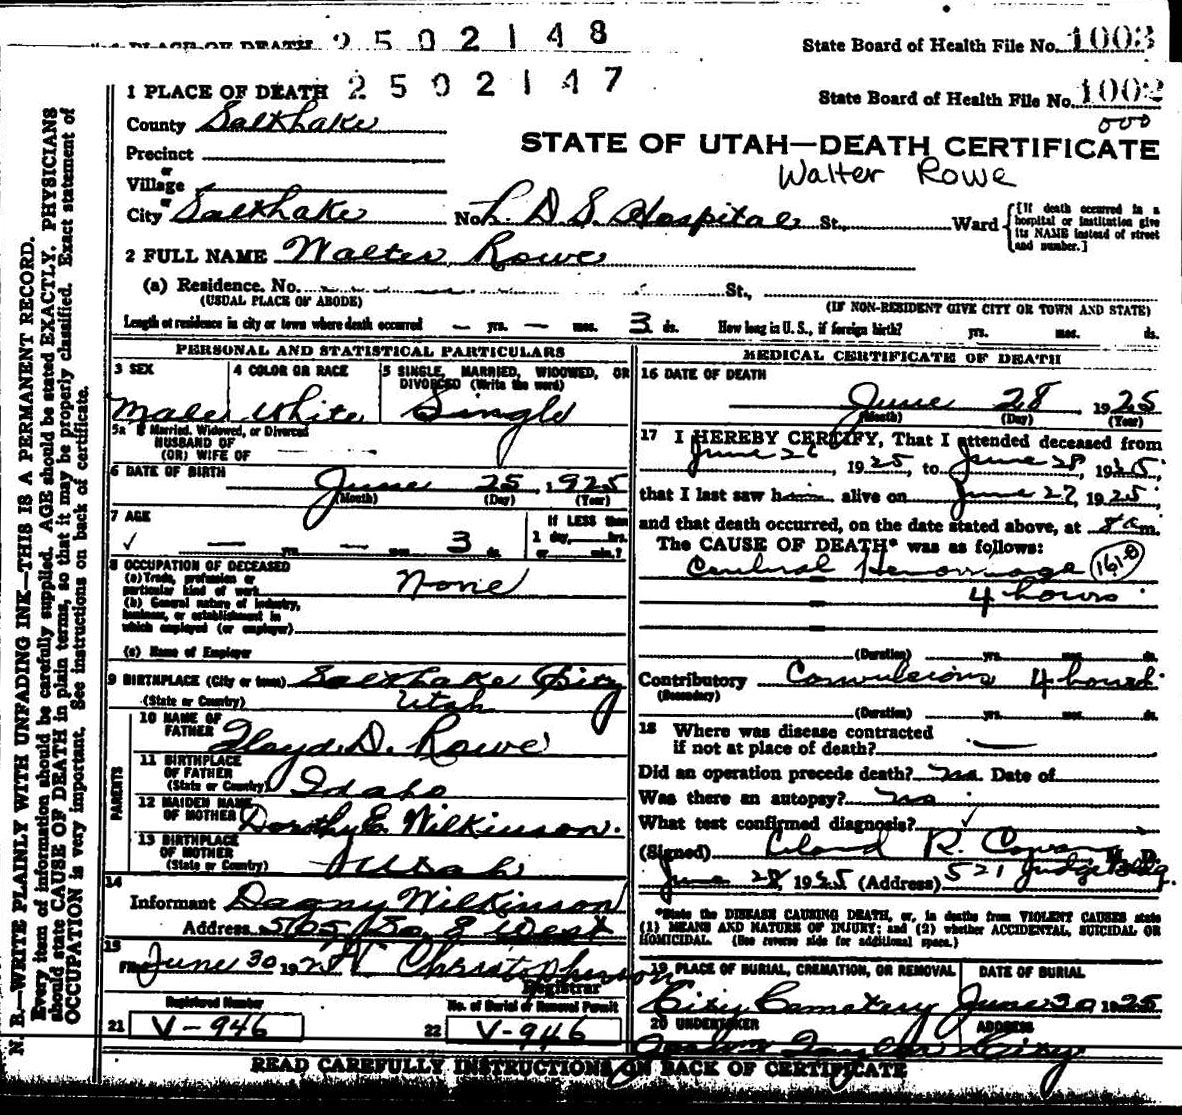 PLACE OF DEATH 2502148 State Board of Health File No. 1003
1 PLACE OF DEATH 2502147 State Board of Health File No. 1002
County Salt Lake 000
Precinct
or
Village
or
STATE OF UTAH—DEATH CERTIFICATE
Walter Rowe
City Salt Lake No. L. D. S. Hospital St., Ward
{[If death occurred in a
hospital or institution give
its NAME instead of street
and number.]
2 FULL NAME Walter Rowe
(a) Residence. No. St.,
(USUAL PLACE OF ABODE) (IF NON-RESIDENT GIVE CITY OR TOWN AND STATE)
Length of residence in city or town where death occurred — yrs. — mos. 3 ds. How long in U. S., if foreign birth? yrs. mos. ds.
PERSONAL AND STATISTICAL PARTICULARS
3 SEX 4 COLOR OR RACE 5 SINGLE, MARRIED, WIDOWED, OR
DIVORCED (Write the word)
Male White Single
5a If Married, Widowed, or Divorced
HUSBAND OF
(OR) WIFE OF
6 DATE OF BIRTH June 25, 1925
(Month) (Day) (Year)
7 AGE If LESS than
✓ — yrs. — mos. 3 ds. 1 day, hrs.
or min.?
8 OCCUPATION OF DECEASED
(a) Trade, profession or
particular kind of work None
(b) General nature of industry,
business, or establishment in
which employed (or employer)
(c) Name of Employer
9 BIRTHPLACE (City or town) Salt Lake City
(State or Country) Utah
PARENTS
10 NAME OF
FATHER Floyd D. Rowe
11 BIRTHPLACE
OF FATHER
(State or Country) Idaho
12 MAIDEN NAME
OF MOTHER Dorothy E. Wilkinson.
13 BIRTHPLACE
OF MOTHER
(State or Country) Utah
14
Informant Dagny Wilkinson
Address 565 So. 8 West
15
Filed June 30 192 Christopherson
Registrar
Registered Number No. of Burial or Removal Permit
21 V-946 22 V-946
MEDICAL CERTIFICATE OF DEATH
16 DATE OF DEATH
June 28, 1925
(Month) (Day) (Year)
17 I HEREBY CERTIFY, That I attended deceased from
June 26, 1925, to June 28, 1925,
that I last saw him alive on June 27, 1925,
and that death occurred, on the date stated above, at 8 a m.
The CAUSE OF DEATH* was as follows:
Cerebral Hemorrhage
4 hours
(Duration) yrs. mos. ds.
Contributory Convulsions 4 hours
(Secondary)
(Duration) yrs. mos. ds.
18 Where was disease contracted
if not at place of death? —
Did an operation precede death? no Date of
Was there an autopsy? no
What test confirmed diagnosis? ✓
(Signed) Leland R. Cowan M. D.
June 28, 1925 (Address) 521 Judge Bldg.
*State the DISEASE CAUSING DEATH, or, in deaths from VIOLENT CAUSES state
(1) MEANS AND NATURE OF INJURY; and (2) whether ACCIDENTAL, SUICIDAL OR
HOMICIDAL. (See reverse side for additional space.)
19 PLACE OF BURIAL, CREMATION, OR REMOVAL DATE OF BURIAL
City Cemetery June 30 1925
20 UNDERTAKER ADDRESS
Taylor City
READ CAREFULLY INSTRUCTIONS ON BACK OF CERTIFICATE
N. B.—WRITE PLAINLY WITH UNFADING INK—THIS IS A PERMANENT RECORD.
Every item of information should be carefully supplied. AGE should be stated EXACTLY. PHYSICIANS
should state CAUSE OF DEATH in plain terms, so that it may be properly classified. Exact statement of
OCCUPATION is very important. See instructions on back of certificate.